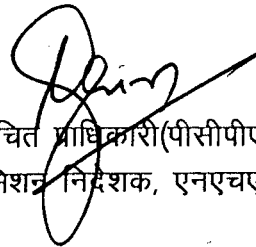 चित प्राधिकारी(पीसीपीए
मिशन निदेशक, एनएचए